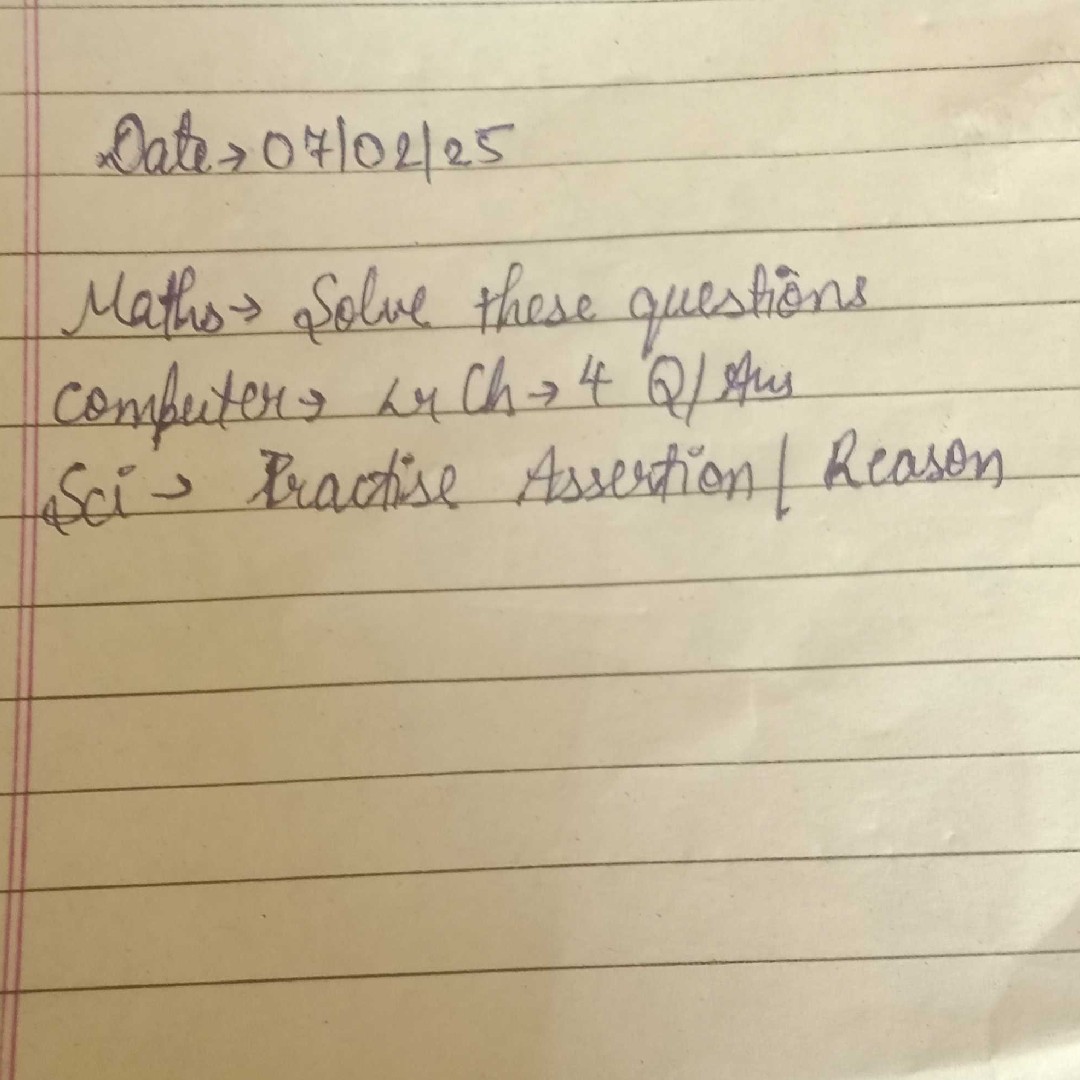 Date → 07/02/25
Maths → Solve these questions
Computer → Lr Ch → 4 Q/Ans
Sci → Practise Assertion / Reason